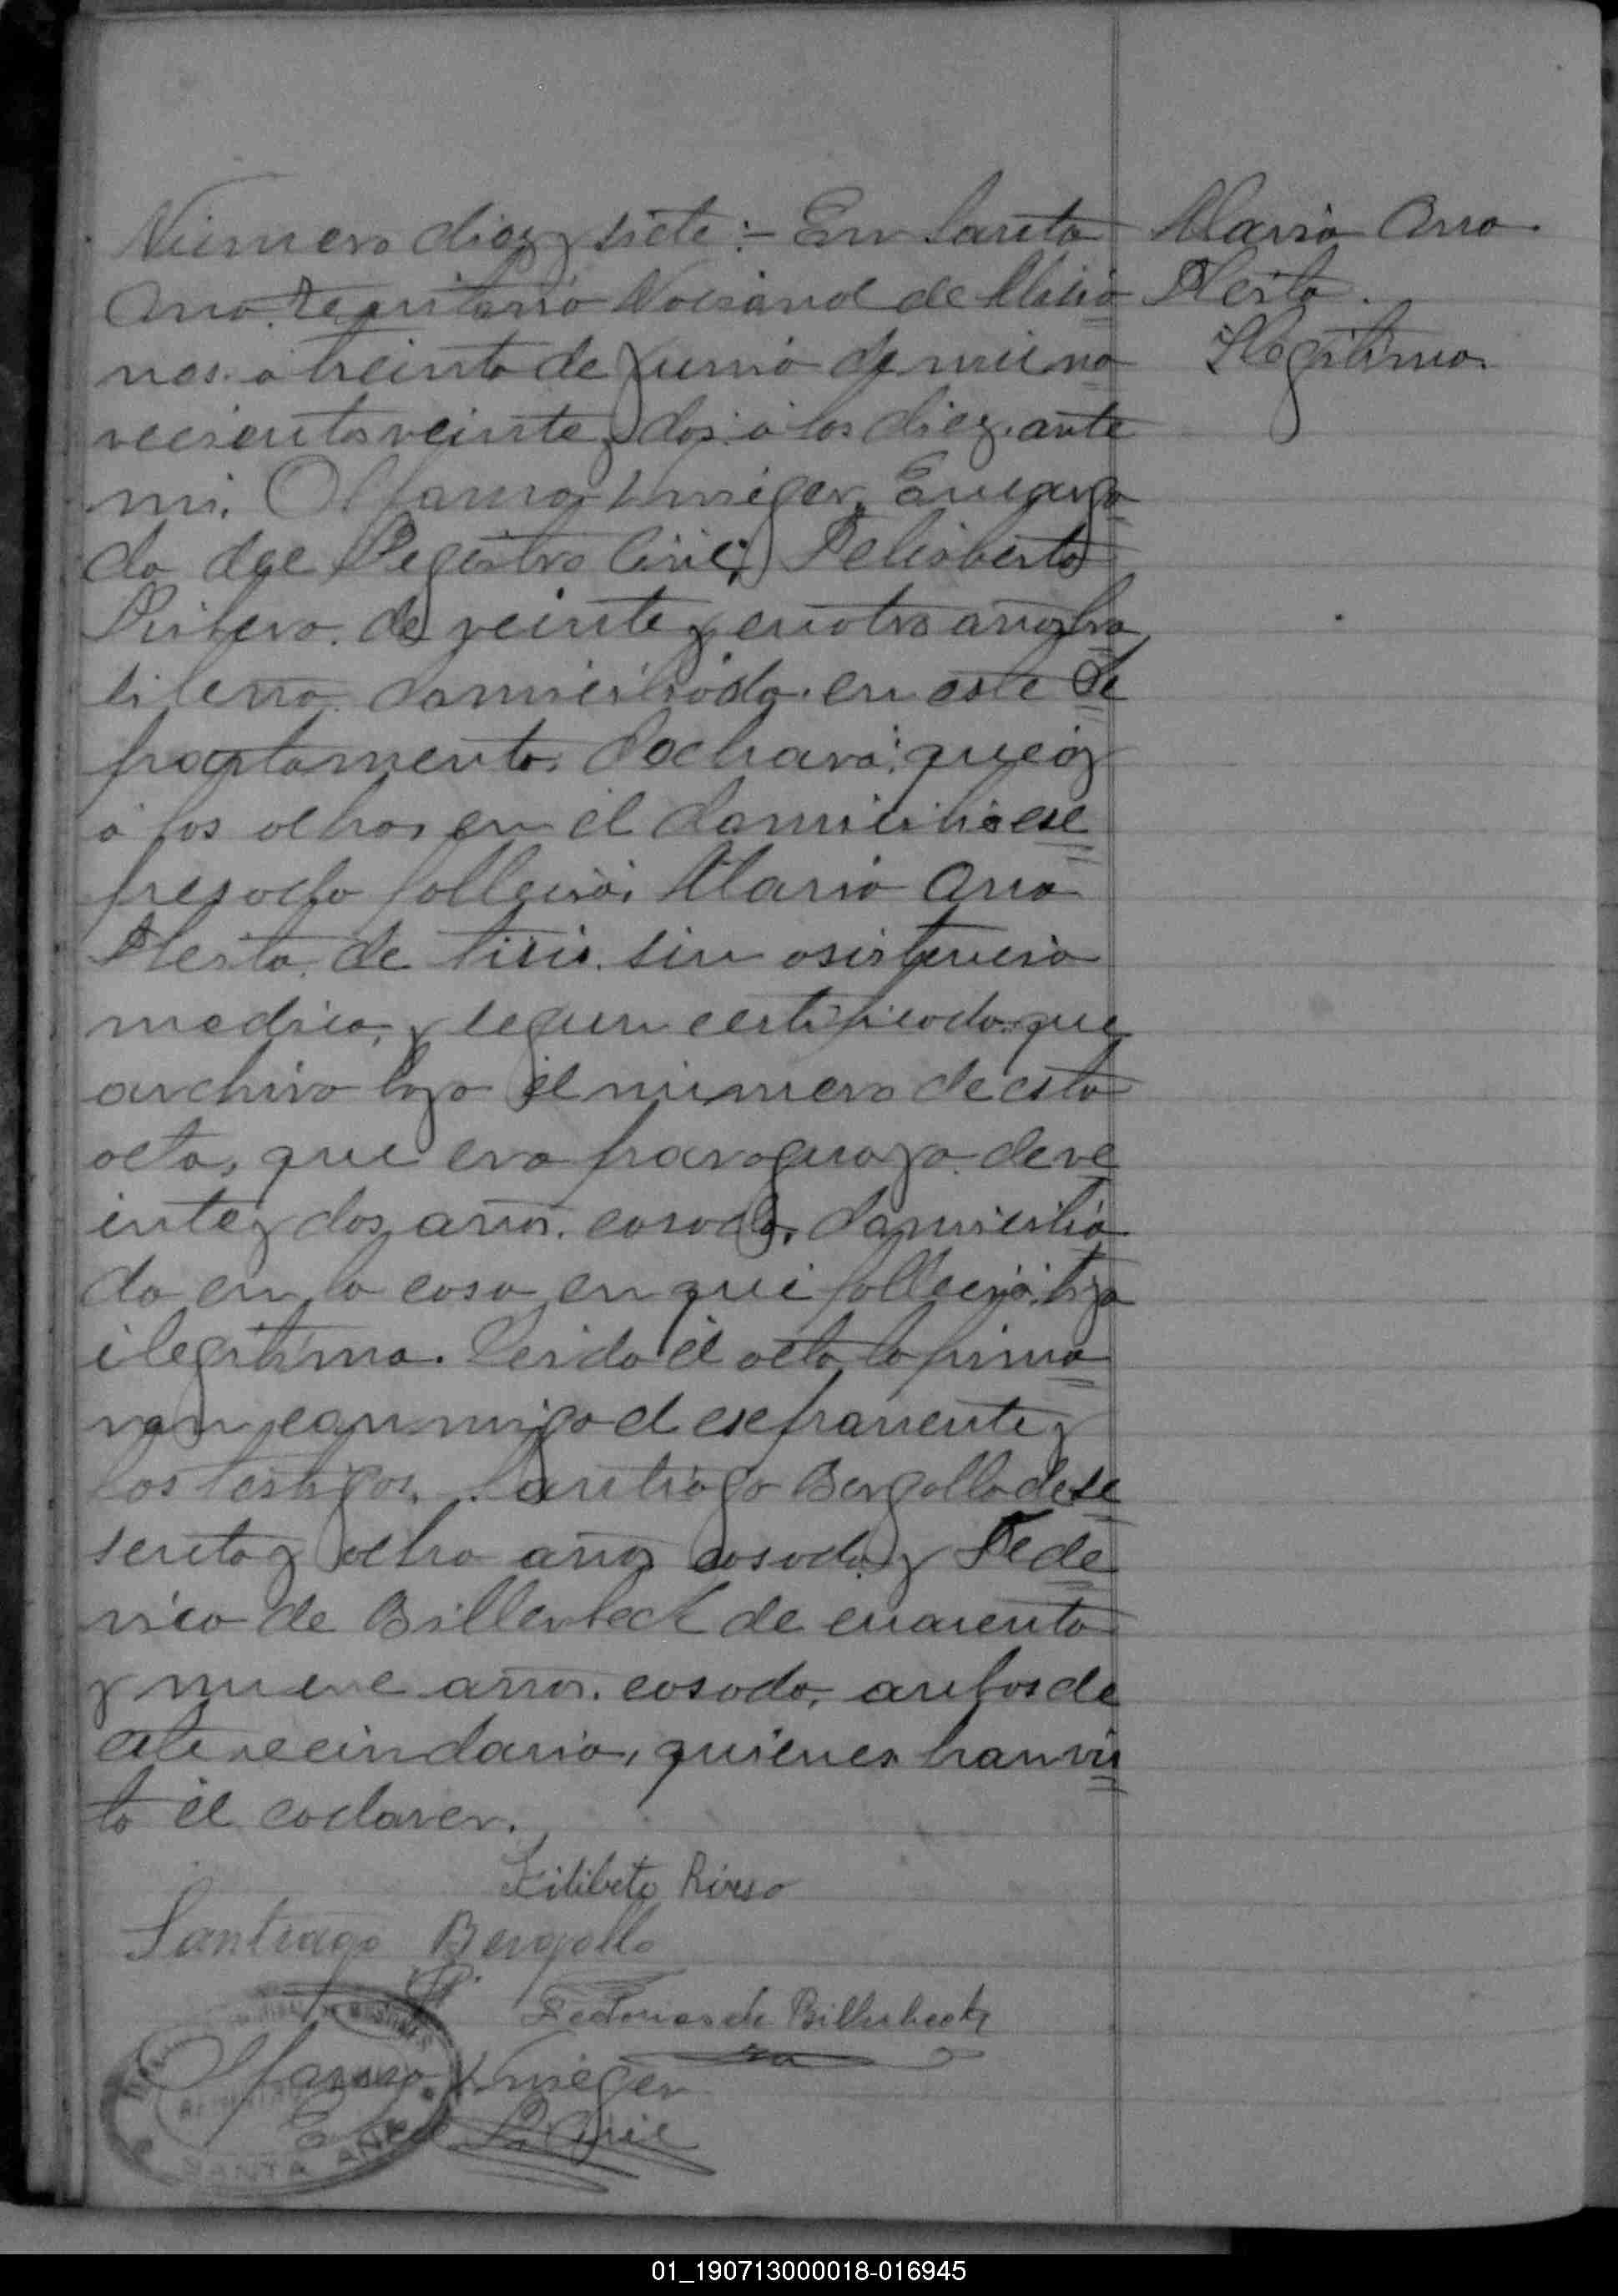 Número diez y siete:- En Santa
Ana, Territorio Nacional de Misio
nes a treinta de Junio de mil no
vecientos veinte y dos a las diez, ante
mi, Krieger, Encarga
do del Registro Civil, Felioberto
Ribero, de veinte y cuatro años, bra
silero domiciliado en este De
partamento, declaró; que hoy
a las ocho, en el domicilio ex
presado falleció, Maria Ana
de tisis, sin asistencia
medica, y segun certificado que
archivo bajo el número de esta
acta, que era paraguaya de ve
inte y dos años, casada, domicilia
da en la casa en que falleció, hija
ilegitima. Leida el acta la firma
ron conmigo el exponente y
los testigos, Santiago Bergallo de se
senta y ocho años casado y Fede
rico de Billerbeck de cuarenta
y nueve años, casado, ambos de
este vecindario, quienes han vis
to el cadaver.
Filiberto Rivero
Santiago Bergallo
Federico de Billerbeck
Krieger
E. del R. Civil
SANTA ANA
Maria Ana
Ilegitima
01_190713000018-016945